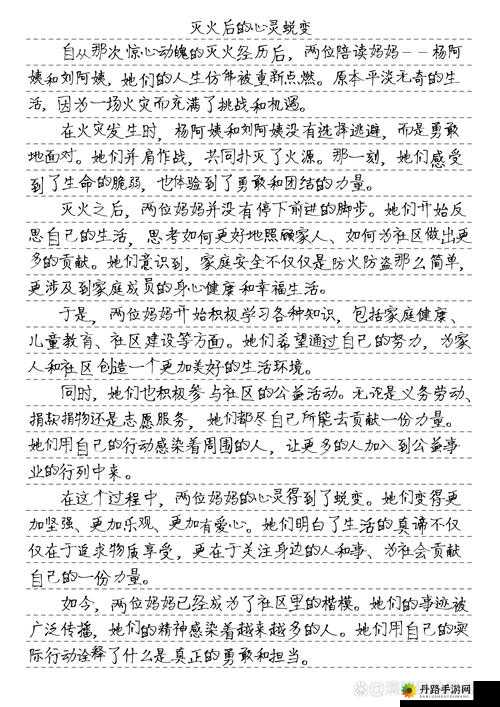 灭火后的心灵蜕变
自从那次惊心动魄的灭火经历后，两位陪读妈妈——杨阿
姨和刘阿姨，她们的人生仿佛被重新点燃。原本平淡无奇的生
活，因为一场火灾而充满了挑战和机遇。
在火灾发生时，杨阿姨和刘阿姨没有选择逃避，而是勇敢
地面对。她们并肩作战，共同扑灭了火源。那一刻，她们感受
到了生命的脆弱，也体验到了勇敢和团结的力量。
灭火之后，两位妈妈并没有停下前进的脚步。她们开始反
思自己的生活，思考如何更好地照顾家人、如何为社区做出更
多的贡献。她们意识到，家庭安全不仅仅是防火防盗那么简单，
更涉及到家庭成员的身心健康和幸福生活。
于是，两位妈妈开始积极学习各种知识，包括家庭健康、
儿童教育、社区建设等方面。她们希望通过自己的努力，为家
人和社区创造一个更加美好的生活环境。
同时，她们也积极参与社区的公益活动。无论是义务劳动、
捐款捐物还是志愿服务，她们都尽自己所能去贡献一份力量。
她们用自己的行动感染着周围的人，让更多的人加入到公益事
业的行列中来。
在这个过程中，两位妈妈的心灵得到了蜕变。她们变得更
加坚强、更加乐观、更加有爱心。她们明白了生活的真谛不仅
仅在于追求物质享受，更在于关注身边的人和事、为社会贡献
自己的一份力量。
如今，两位妈妈已经成为了社区里的楷模。她们的事迹被
广泛传播，她们的精神感染着越来越多的人。她们用自己的实
际行动诠释了什么是真正的勇敢和担当。
丹路手游网